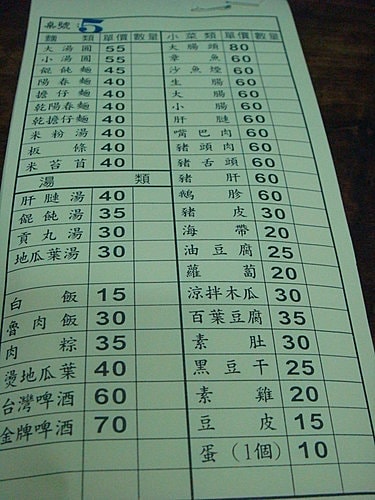 桌號: 5
麵類 單價 數量
大湯圓 55
小湯圓 55
餛飩麵 45
陽春麵 40
擔仔麵 40
乾陽春麵 40
乾擔仔麵 40
米粉湯 40
板條 40
米苔目 40
湯類
肝腱湯 40
餛飩湯 35
貢丸湯 30
地瓜葉湯 30
白飯 15
魯肉飯 30
肉粽 35
燙地瓜葉 40
台灣啤酒 60
金牌啤酒 70
小菜類 單價 數量
大腸頭 80
章魚 60
沙魚煙 60
生腸 60
大腸 60
小腸 60
肝腱 60
嘴巴肉 60
豬頭肉 60
豬舌頭 60
豬肝 60
鵝胗 60
豬皮 30
海帶 20
油豆腐 25
蘿蔔 20
涼拌木瓜 30
百葉豆腐 35
素肚 30
黑豆干 25
素雞 20
豆皮 15
蛋(1個) 10